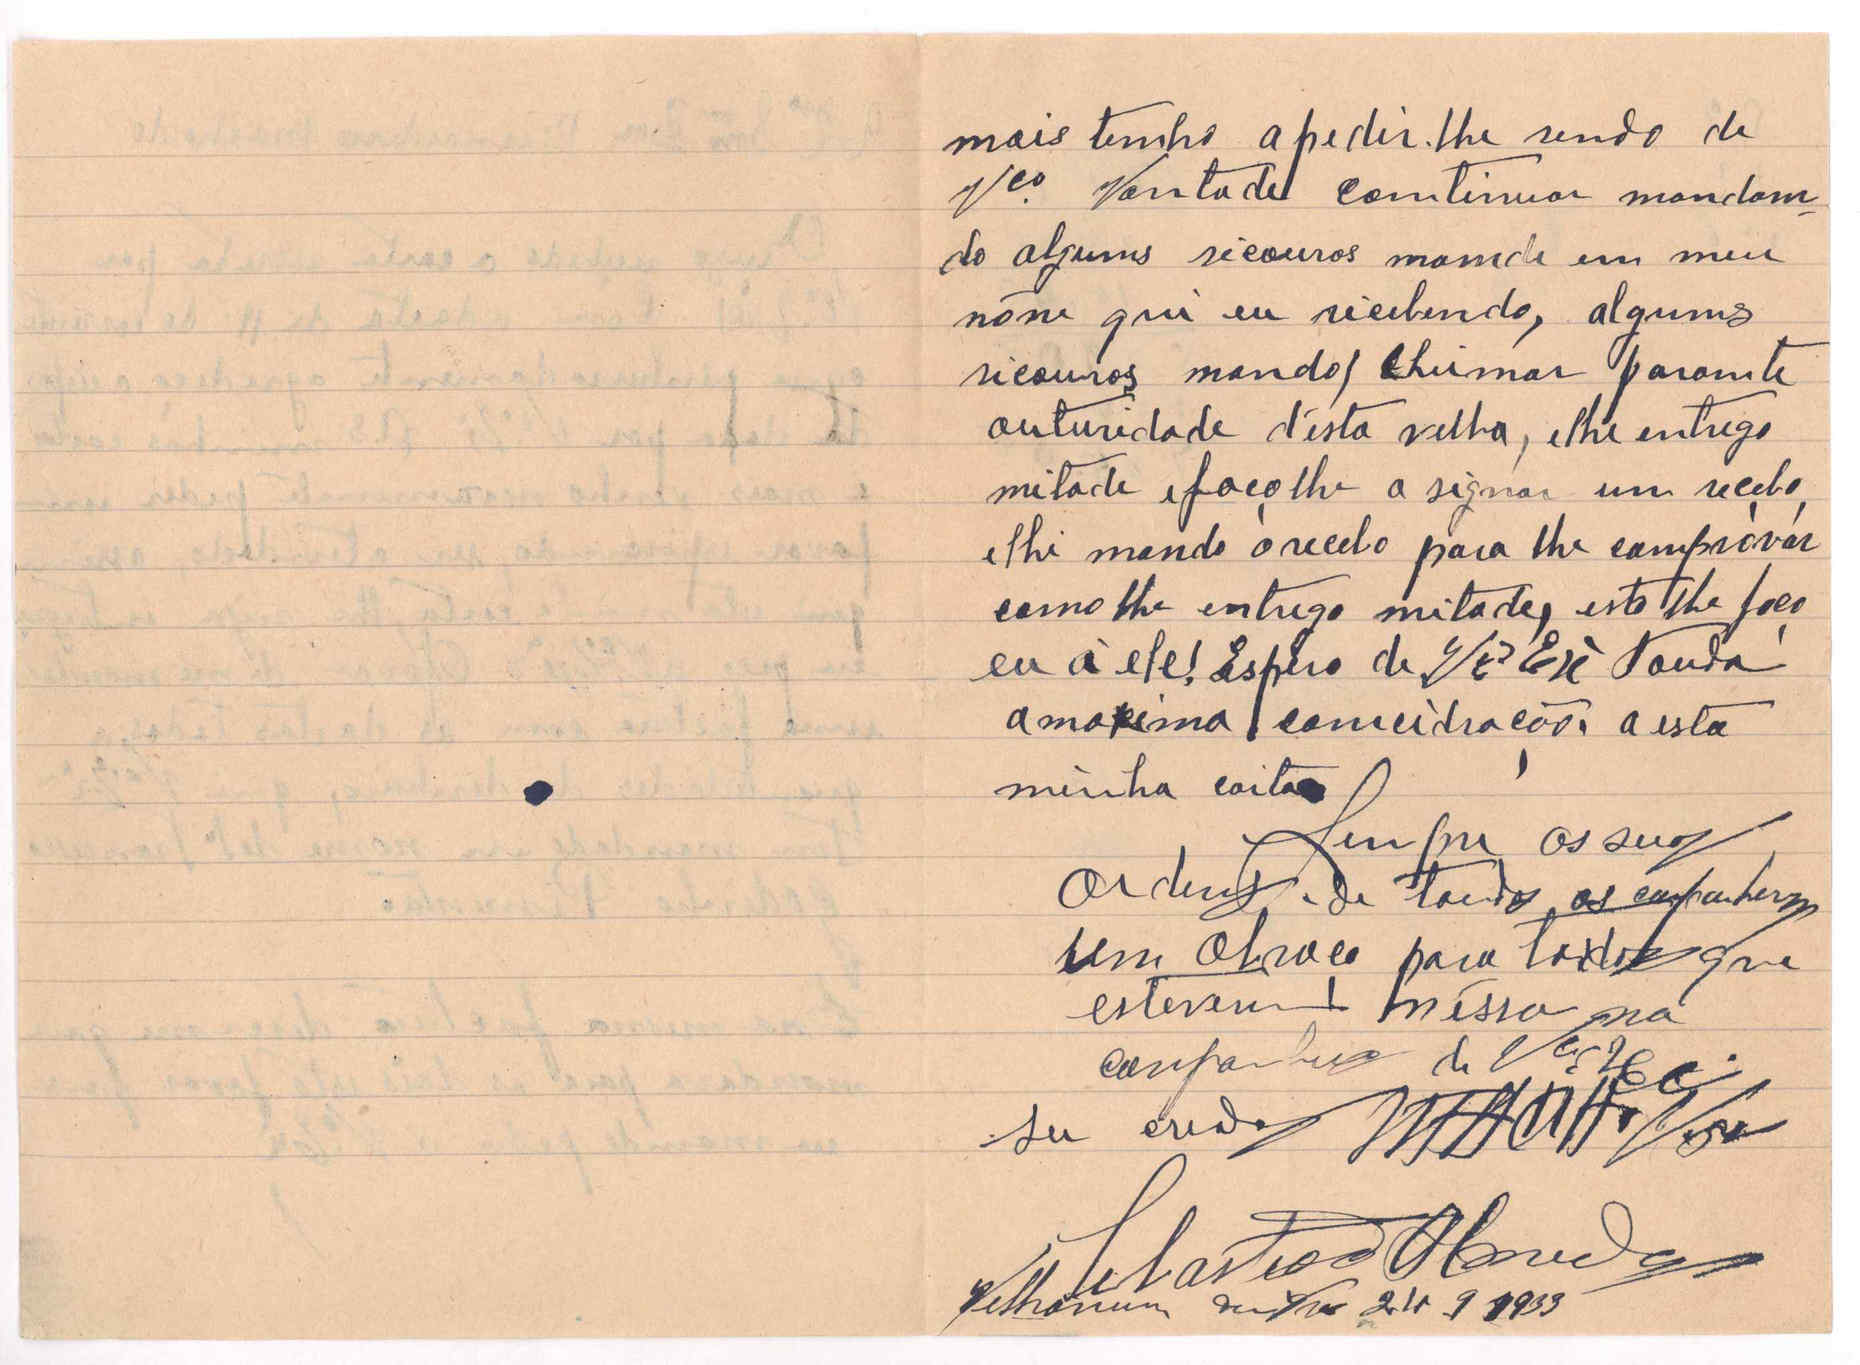 mais tenho apedir.lhe sendo de
Vco. Vontade comtinuar mandam-
do algums sicouros mamde em meu
nóme qui eu ricebendo, algums
sicouros mando, Chiimar paramte
auturidade d'esta velha, elhe entrego
mitade efaço lhe a signar um recebo,
elhi mando o recebo para lhe compróvár
como lhe entrego mitade, esto lhe faço
eu à ele! Espero de Vcª Exª Touda
amaxima comcidração. a esta
minha carta
Sempre os seus
Ordens de toudos os companheros
um Abraço para todos que
esteverem nessa na
companhia de
seu creado
Sebastião Almeda
24 9 1933